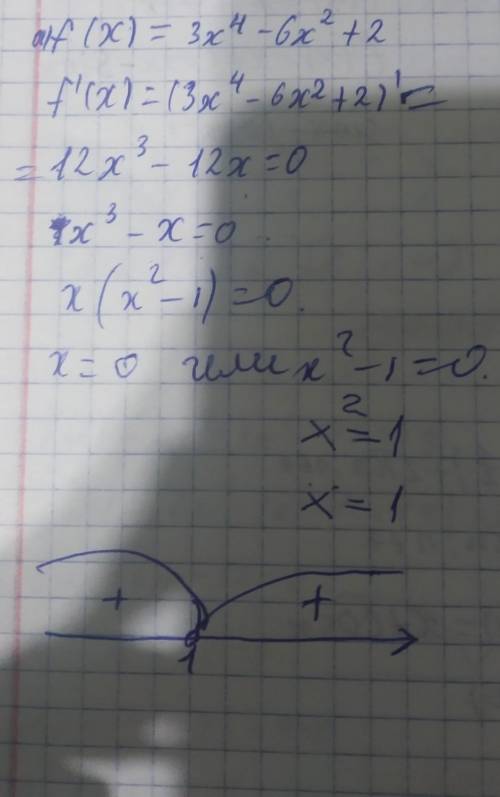 а) f(x) = 3x⁴ - 6x² + 2
f'(x) = (3x⁴ - 6x² + 2)' =
= 12x³ - 12x = 0
x³ - x = 0
x(x² - 1) = 0.
x = 0 или x² - 1 = 0.
x² = 1
x = 1
+ +
1